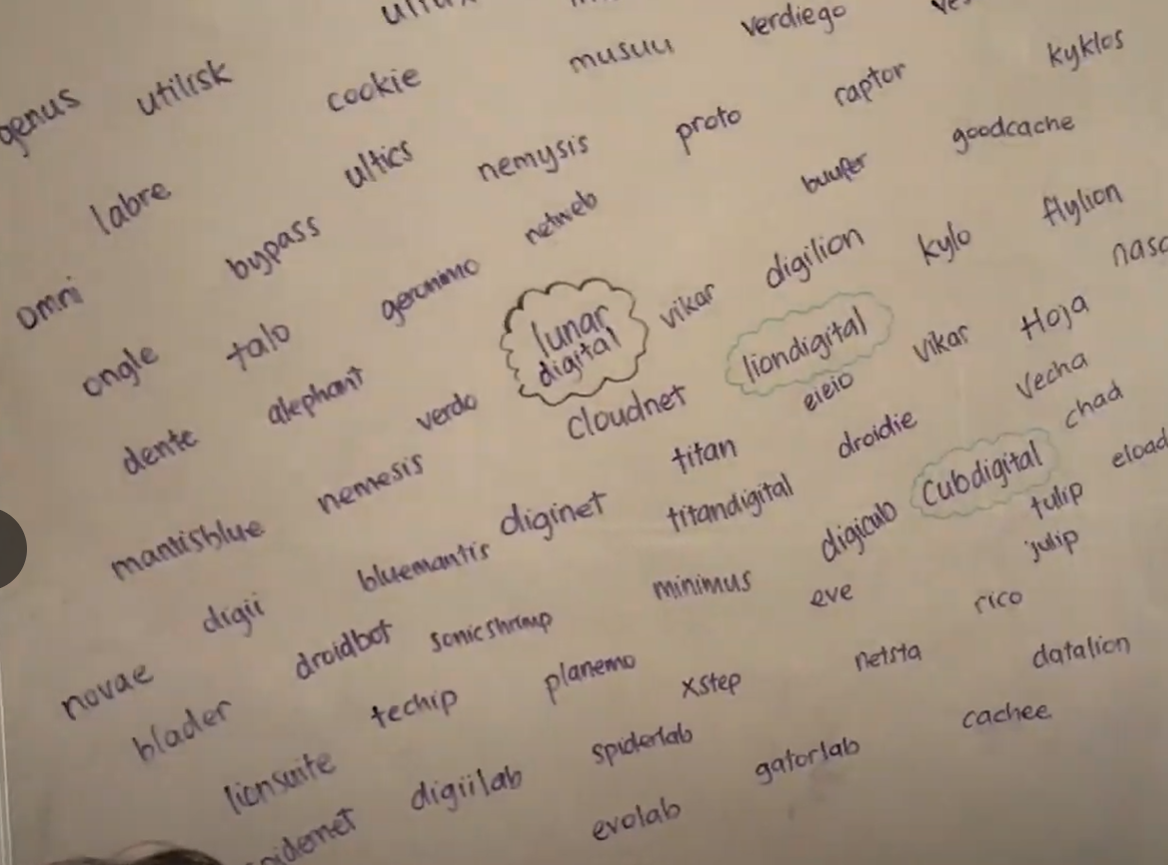 verdiego
musuu
kyklos
cookie
utilisk
genus
raptor
proto
goodcache
nemysis
ultics
labre
buufer
netweb
bypass
flylion
kylo
digilion
geronimo
omni
vikar
lunar
digital
liondigital
talo
ongle
Hoja
vikar
eieio
alephant
verdo
cloudnet
Vecha
chad
dente
titan
droidie
nemesis
cubdigital
eload
titandigital
tulip
diginet
digicub
mantisblue
bluemantis
julip
minimus
eve
rico
digii
sonicshrimp
droidbot
netsta
datalion
novae
planemo
xstep
techip
cachee
blader
spiderlab
gatorlab
lionsuite
digiilab
evolab